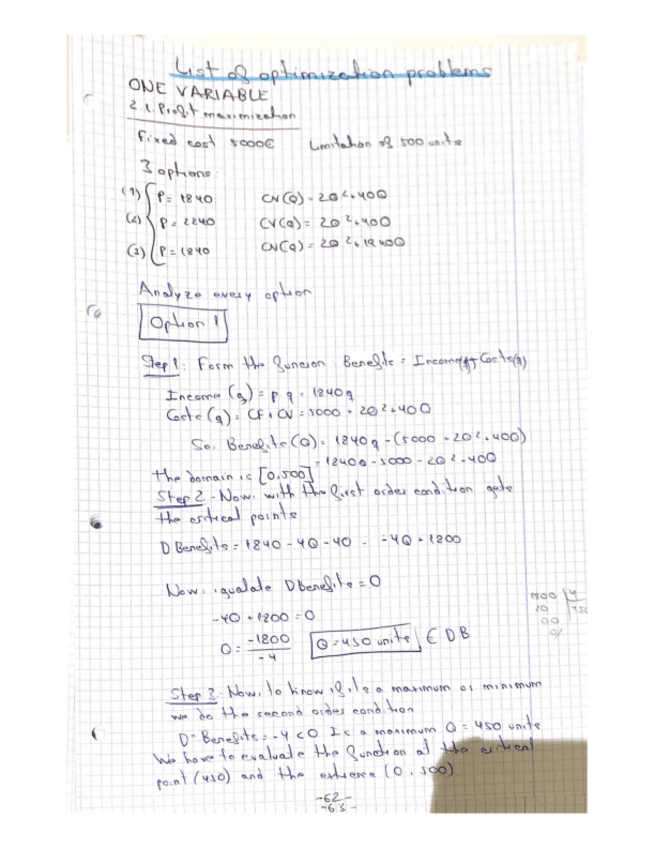 List of optimization problems
ONE VARIABLE
2.1 Profit maximization
Fixed cost 5000€ Limitation of 500 units
3 options:
(1) P = 1840 CV(Q) = 2Q²+40Q
(2) P = 2240 CV(Q) = 2Q²+40Q
(3) P = 1840 CV(Q) = 2Q²+1240Q
Analyze every option
Option 1
Step 1: Form the function Benefits = Income(q)-Costs(q)
Income (q) = p q = 1840q
Costs (q) = CF + CV = 5000 + 2Q²+40Q
So, Benefits(Q) = 1840q - (5000 + 2Q²+40Q)
= 1840Q - 5000 - 2Q² - 40Q
the domain is [0,500]
Step 2 - Now, with the first order condition gets
the critical points
D Benefits = 1840 - 4Q - 40 = -4Q + 1800
Now, igualate D Benefits = 0
-4Q + 1800 = 0
Q = -1800 / -4 Q = 450 units ∈ DB
1800 4
20 450
00
0
Step 3 - Now, to know if its a maximum or minimum
we do the second order condition
D² Benefits = -4 < 0 Is a maximum Q = 450 units
We have to evaluate the function at the critical
point (450) and the extreme (0, 500)
-62-
-63-